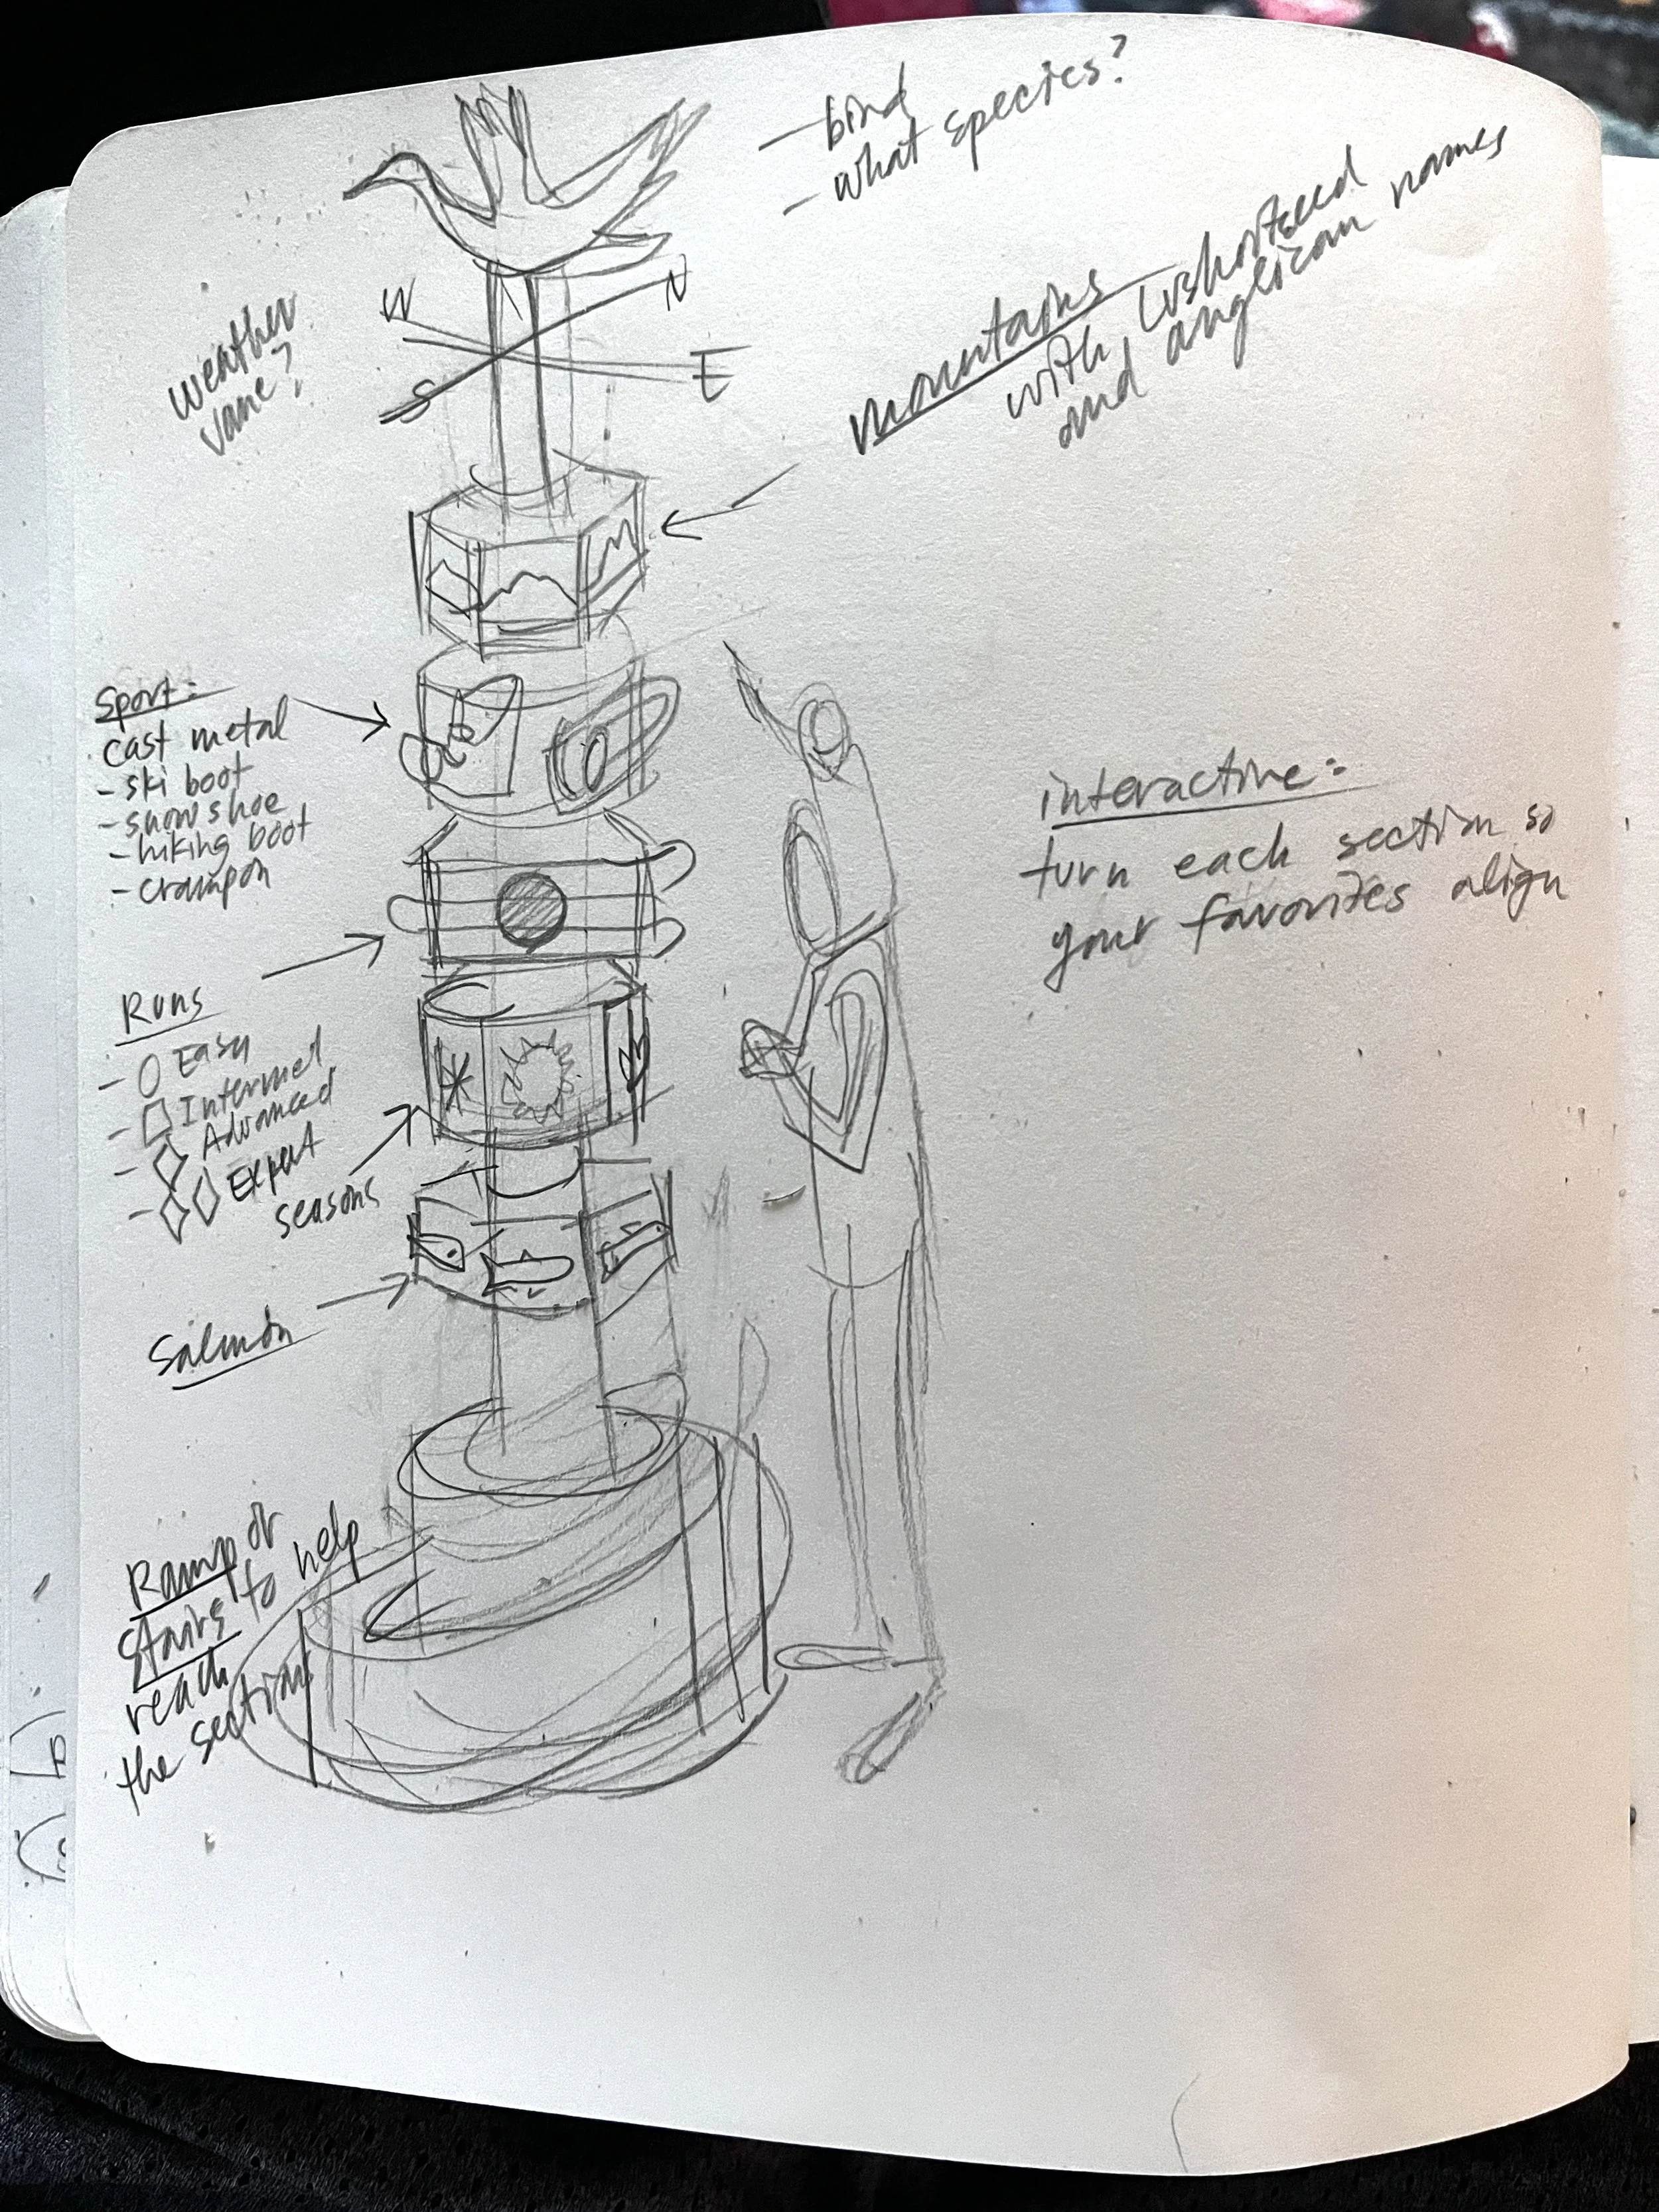 - bird
- what species?
weather
vane?
W
N
S
E
mountains
with Lushootseed
and anglican names
Sport:
cast metal
- ski boot
- snow shoe
- hiking boot
- crampon
interactive:
turn each section so
your favorites align
Runs
- Easy
- Intermed
- Advanced
- Expert
seasons
Salmon
Ramp or
stairs to help
reach
the section